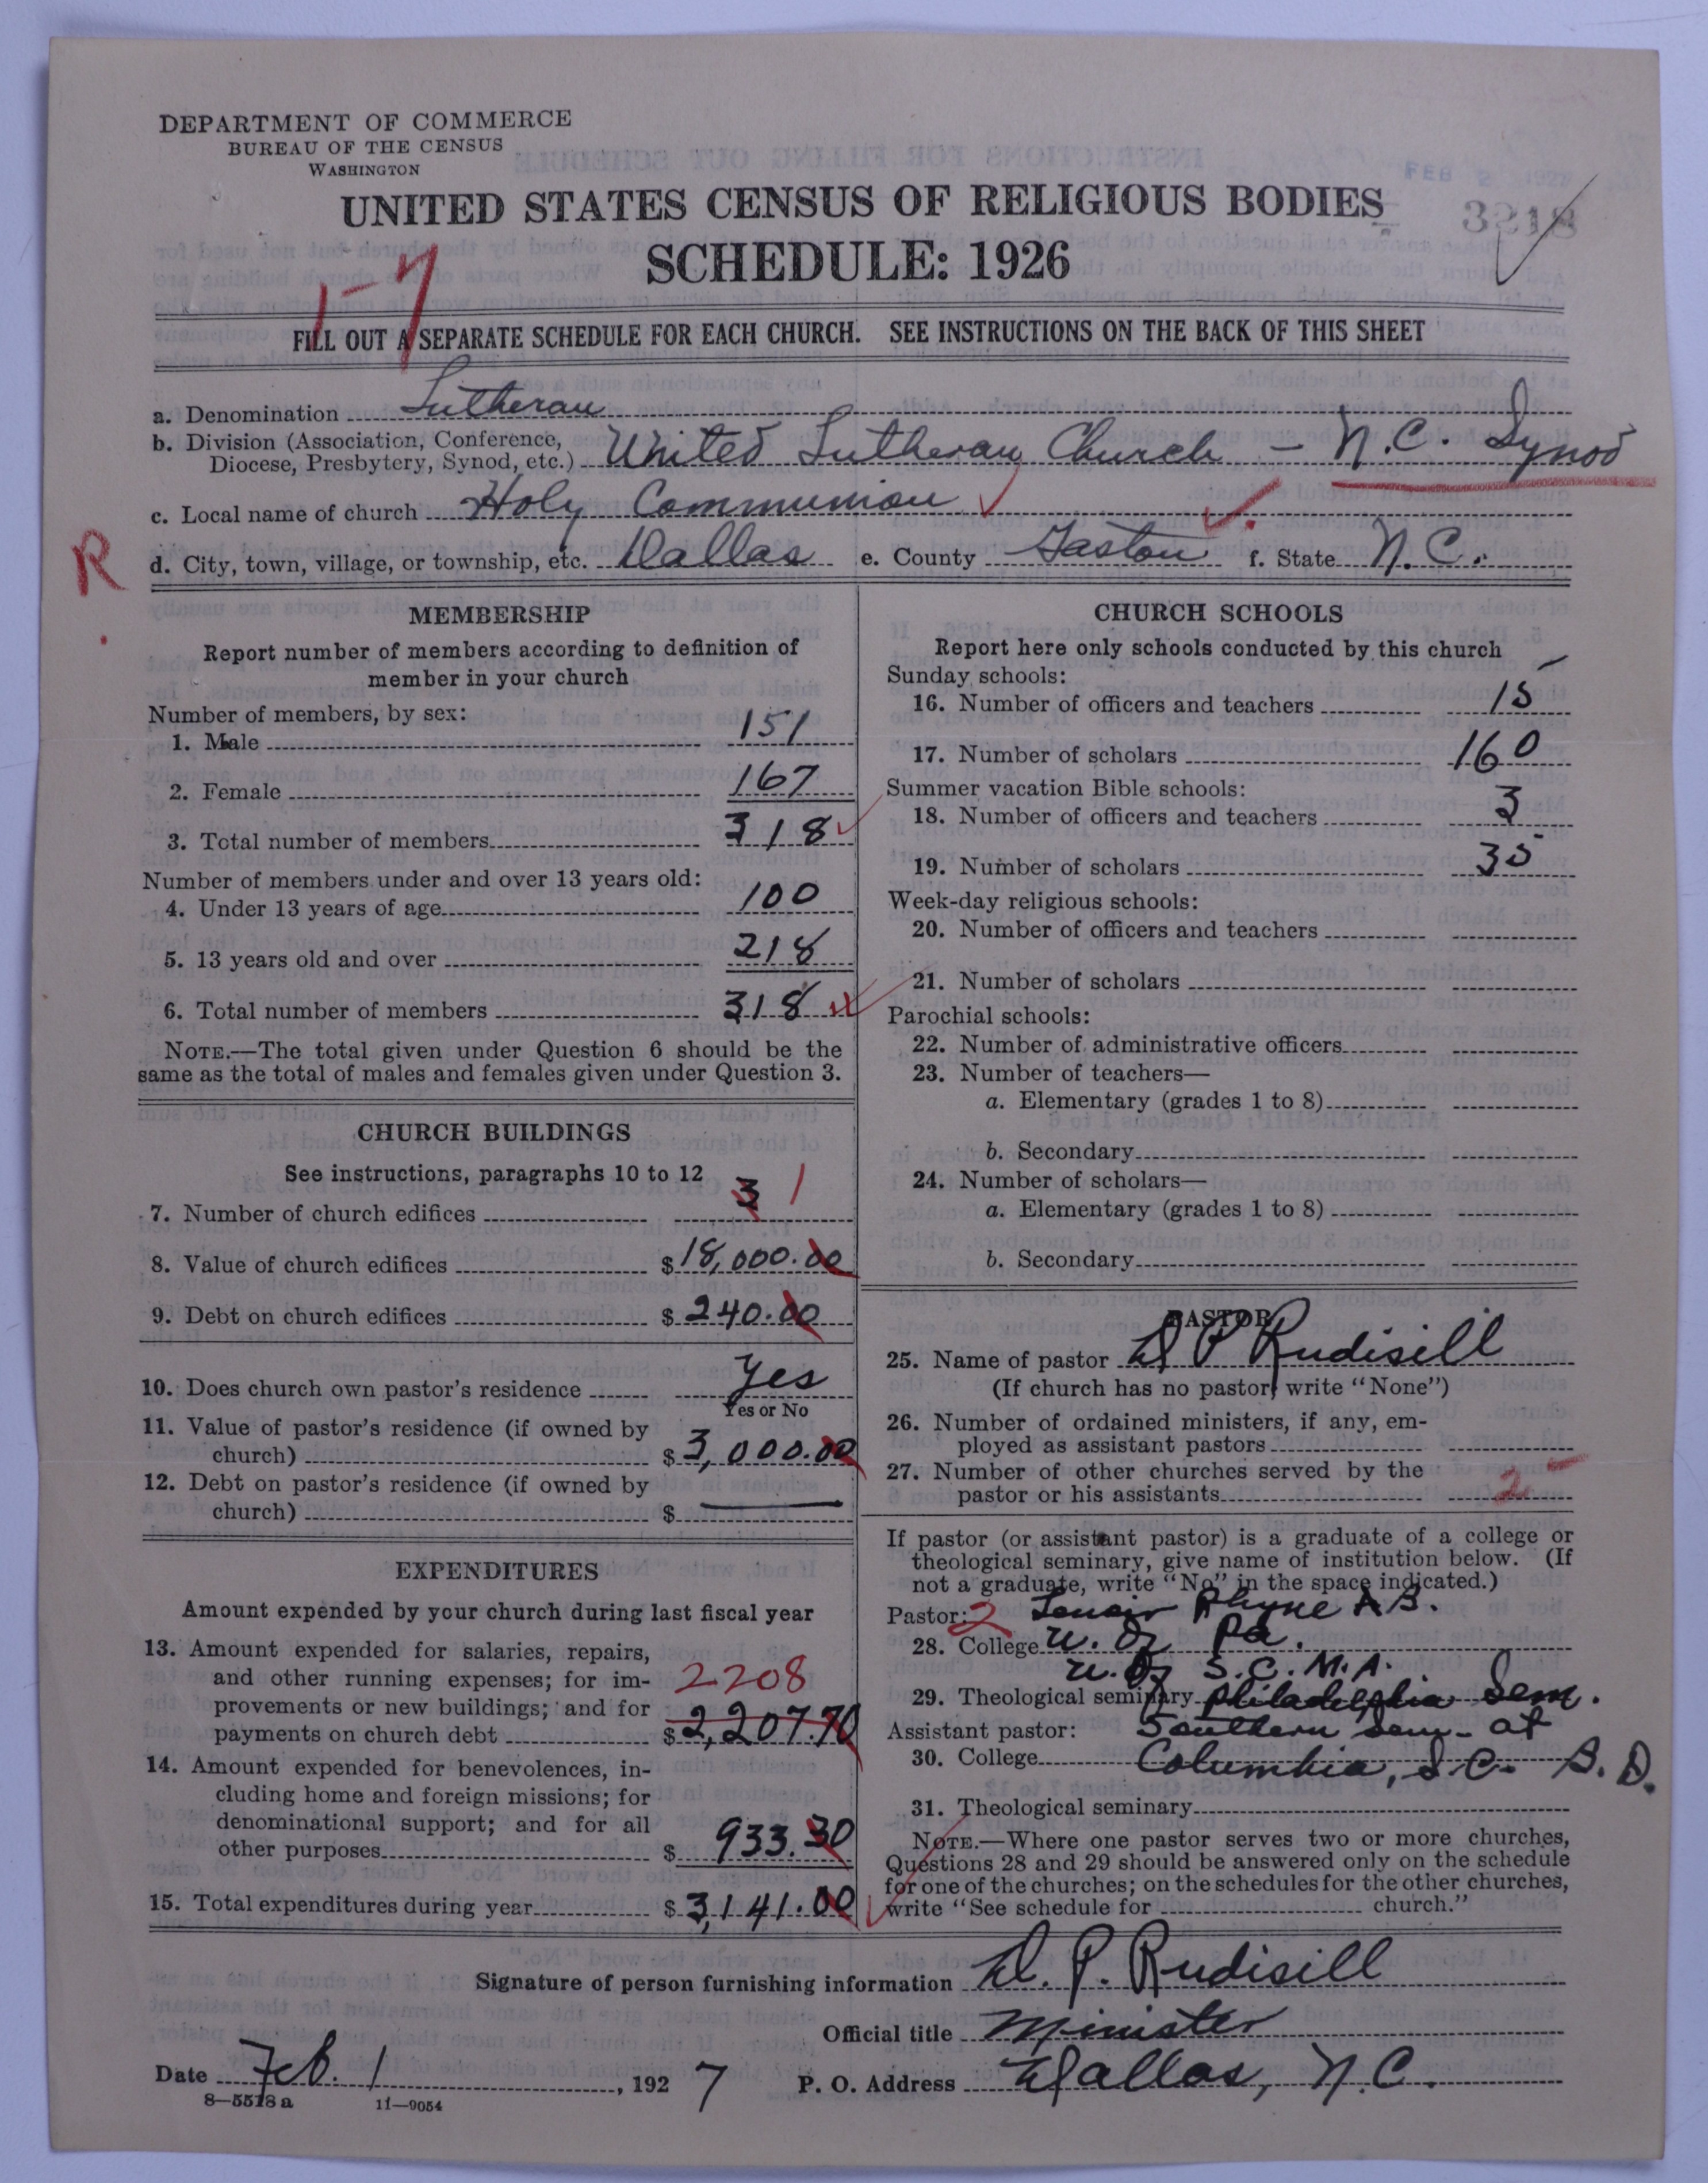 DEPARTMENT OF COMMERCE
BUREAU OF THE CENSUS
WASHINGTON
FEB 2 1927
UNITED STATES CENSUS OF RELIGIOUS BODIES
3218
SCHEDULE: 1926
1-7
FILL OUT A SEPARATE SCHEDULE FOR EACH CHURCH. SEE INSTRUCTIONS ON THE BACK OF THIS SHEET
a. Denomination Lutheran
b. Division (Association, Conference, Diocese, Presbytery, Synod, etc.) United Lutheran Church - N.C. Synod
c. Local name of church Holy Communion
R
d. City, town, village, or township, etc. Dallas e. County Gaston f. State N.C.
MEMBERSHIP
Report number of members according to definition of
member in your church
Number of members, by sex:
1. Male 151
2. Female 167
3. Total number of members 318
Number of members under and over 13 years old:
4. Under 13 years of age 100
5. 13 years old and over 218
6. Total number of members 318
NOTE.—The total given under Question 6 should be the
same as the total of males and females given under Question 3.
CHURCH BUILDINGS
See instructions, paragraphs 10 to 12
7. Number of church edifices 3 1
8. Value of church edifices $18,000.00
9. Debt on church edifices $240.00
10. Does church own pastor's residence Yes
Yes or No
11. Value of pastor's residence (if owned by
church) $3,000.00
12. Debt on pastor's residence (if owned by
church) $ —
EXPENDITURES
Amount expended by your church during last fiscal year
13. Amount expended for salaries, repairs,
and other running expenses; for im-
provements or new buildings; and for
2208
payments on church debt $2,207.70
14. Amount expended for benevolences, in-
cluding home and foreign missions; for
denominational support; and for all
other purposes $933.30
15. Total expenditures during year $3,141.00
CHURCH SCHOOLS
Report here only schools conducted by this church
Sunday schools:
16. Number of officers and teachers 15
17. Number of scholars 160
Summer vacation Bible schools:
18. Number of officers and teachers 3
19. Number of scholars 35
Week-day religious schools:
20. Number of officers and teachers
21. Number of scholars
Parochial schools:
22. Number of administrative officers
23. Number of teachers—
a. Elementary (grades 1 to 8)
b. Secondary
24. Number of scholars—
a. Elementary (grades 1 to 8)
b. Secondary
PASTOR
25. Name of pastor D P Rudisill
(If church has no pastor, write "None")
26. Number of ordained ministers, if any, em-
ployed as assistant pastors
27. Number of other churches served by the
pastor or his assistants 2
If pastor (or assistant pastor) is a graduate of a college or
theological seminary, give name of institution below. (If
not a graduate, write "No" in the space indicated.)
Pastor: 2 Lenoir Rhyne A B.
28. College U. of Pa.
U. of S.C. M.A.
29. Theological seminary Philadelphia Sem.
Assistant pastor: Southern Sem - at
30. College Columbia, S.C. B.D.
31. Theological seminary
NOTE.—Where one pastor serves two or more churches,
Questions 28 and 29 should be answered only on the schedule
for one of the churches; on the schedules for the other churches,
write "See schedule for church."
Signature of person furnishing information D. P. Rudisill
Official title Minister
Date Feb. 1, 1927 P. O. Address Dallas, N.C.
8—5578 a 11—9054